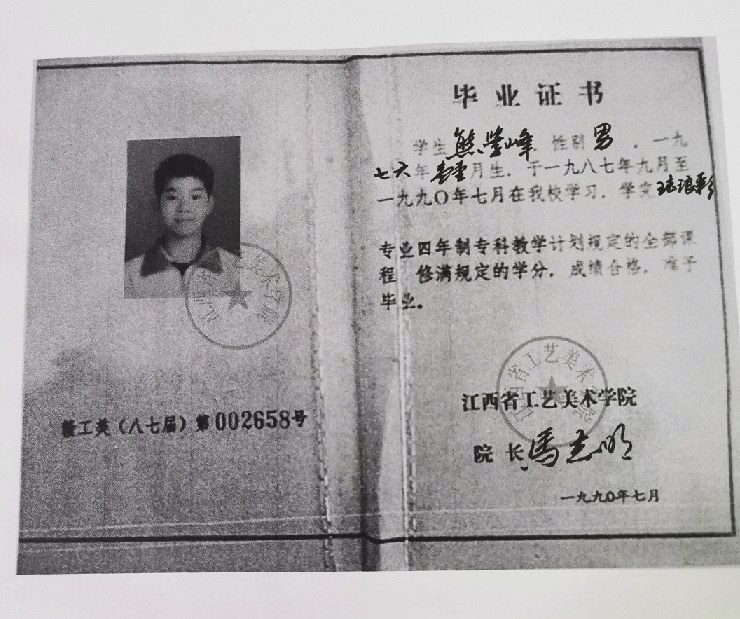 江西省工艺美术学院
赣工美（八七届）第002658号
毕业证书
学生熊莹峰，性别男，一九
七六年 月生，于一九八七年九月至
一九九〇年七月在我校学习，学完
专业四年制专科教学计划规定的全部课
程 修满规定的学分，成绩合格，准予
毕业。
江西省工艺美术学院
江西省工艺美术学院
院 长 冯志明
一九九〇年七月